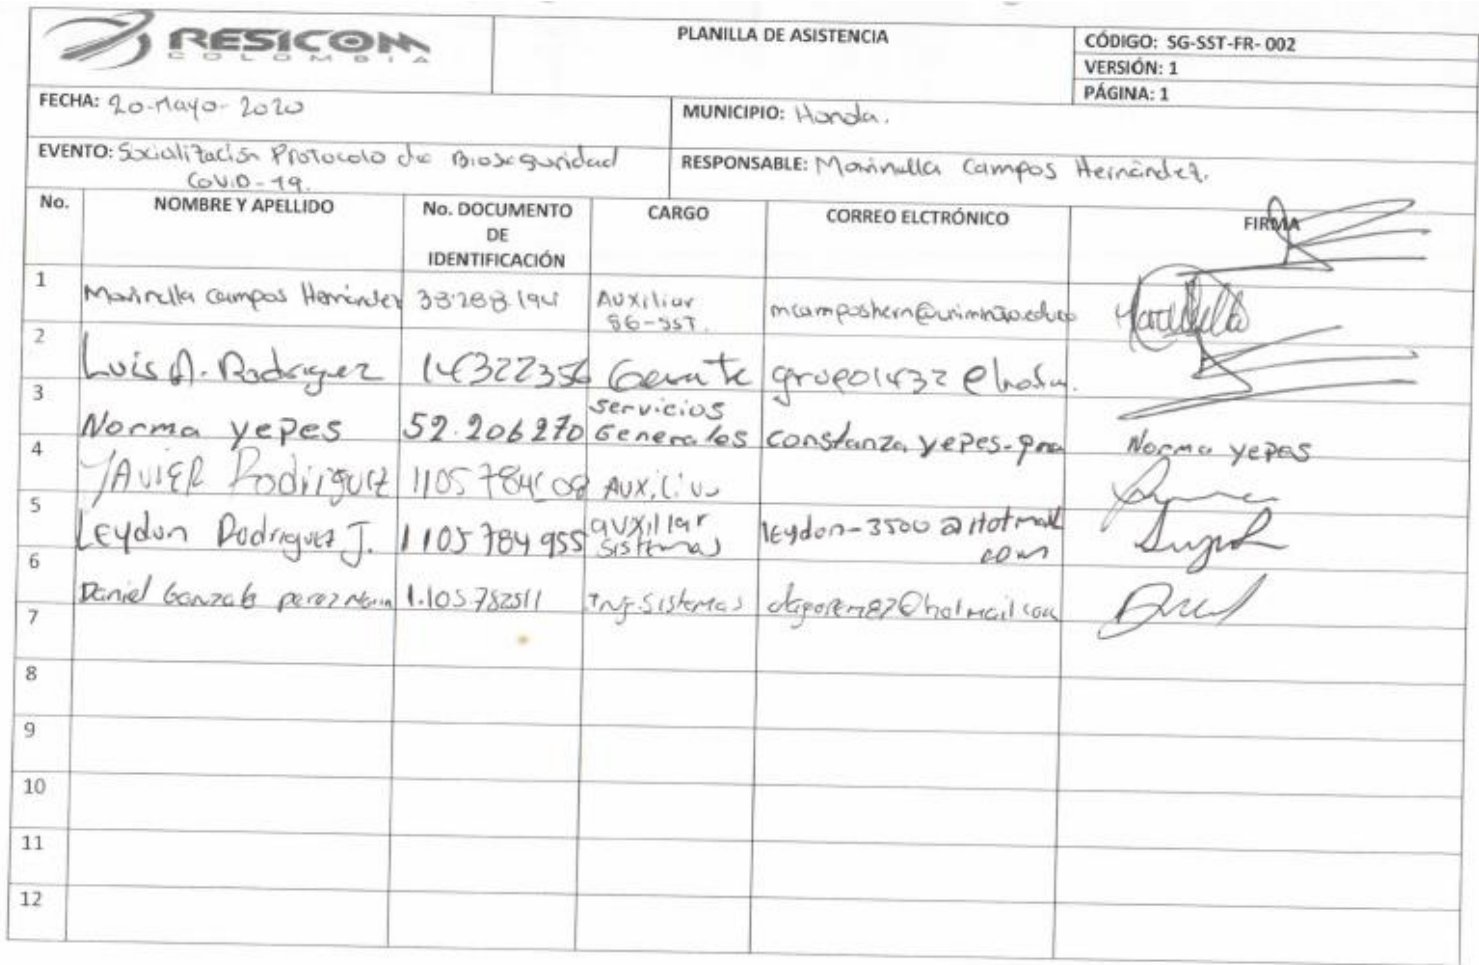 RESICOM
COLOMBIA
PLANILLA DE ASISTENCIA
CÓDIGO: SG-SST-FR- 002
VERSIÓN: 1
PÁGINA: 1
FECHA: 20-Mayo-2020
MUNICIPIO: Honda.
EVENTO: Socialización Protocolo de Bioseguridad
COVID-19.
RESPONSABLE: Marinella Campos Hernández.
No.
NOMBRE Y APELLIDO
No. DOCUMENTO
DE
IDENTIFICACIÓN
CARGO
CORREO ELCTRÓNICO
FIRMA
1
Marinella Campos Hernández
Auxiliar
SG-SST.
2
Luis A. Rodriguez 14322356 Gerente
3
Norma yepes 52.206270 Servicios
Generales constanza.yepes-gma Norma yepes
4
JAVIER Rodriguez
5
Leydon Rodriguez J. 1105784955 auxiliar
Sistemas
leydon-3500@Hotmail
com
6
Daniel Gonzalo perez 1.105.782511 Ing.Sistemas
7
8
9
10
11
12